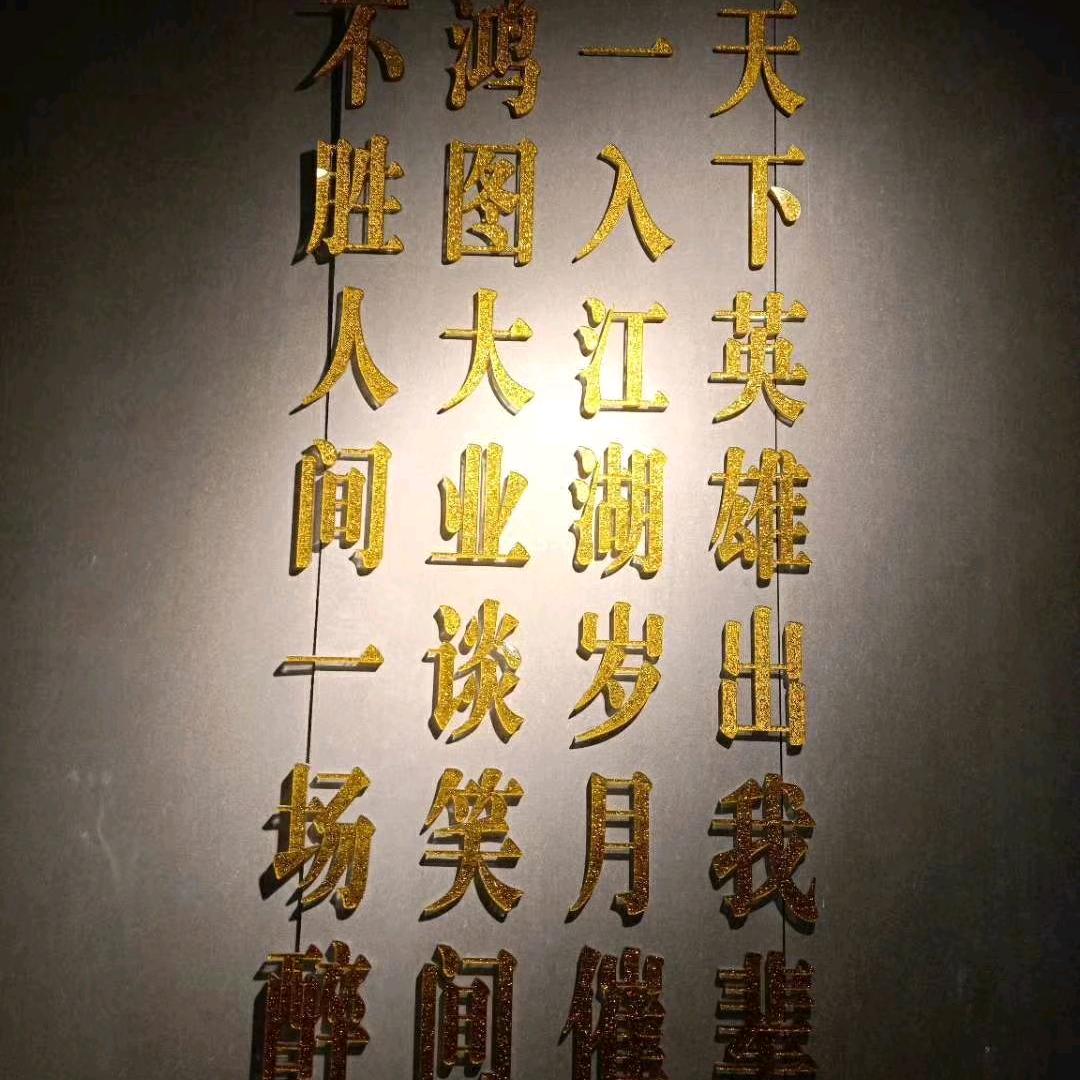 天下英雄出我辈
一入江湖岁月催
鸿图大业谈笑间
不胜人间一场醉